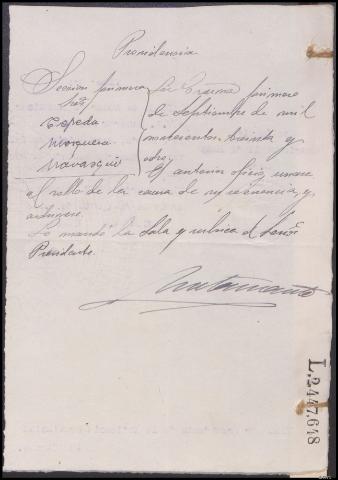 Providencia
Seccion primera
Sres
Cepeda
Mosquera
Navarro
La Coruña primero
de Septiembre de mil
novecientos treinta y
ocho.
El anterior oficio, unase
al rollo de la causa de su referencia, y
archivese.
Lo mandó la Sala y rubrica el Señor
Presidente.
L.2447,648